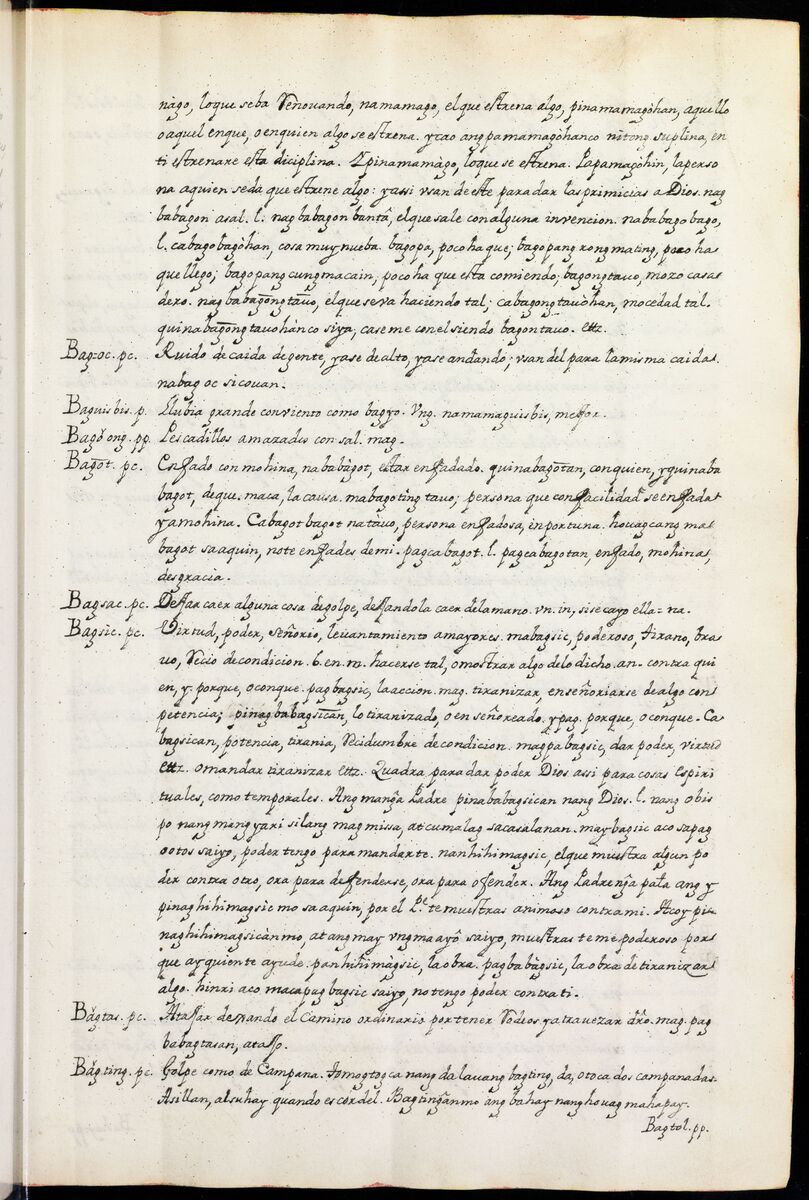 nàgo, loque seba Renouando, na mamago, el que estrena algo, pinamamagòhan, aquello
o aquel enque, o enquien algo se estrena. ycao ang pamamagòhanco nitong suplina, en
ti estrenare esta diciplina. Ypinamamàgo, loque se estrena. Papamagòhin, la perso
na aquien seda que estrene algo: y assi vsan de este para dar las primicias a Dios. nag
babagon asal. l. nag babagon buntâ, el que sale con alguna invencion. na babago bago,
l. cabago bagòhan, cosa muy nueba. bagopa, poco ha que; bago pang rongmating, poco ha
que llego; bago pang cungmacain, poco ha que esta comiendo; bagong tauo, mozo casa
dero. nag babagong tauo, el que se va haciendo tal; cabagong tauòhan, mocedad tal.
quinabagong tauo hànco siya, case me con el siendo bagon tauo. ettz.
Bag=oc. pc. Ruido de caida de gente, ya se de alto, ya se andando; vsan del para la misma caida.
nabag oc si couan.
Baguis bis. p. Llubia grande con viento como bagyo. Vng. namamaguis bis, mejor.
Bagŏ ong. pp. Pescadillos amazados con sal. mag.
Bagot. pc. Enfado con mohina, na babàgot, estar enfadado. quinabagotan, con quien, yquinaba
bagot, de que. maca, la causa. mabagoting tauo; persona que con facilidad se enfada
y amohina. Cabagot bagot na tàuo, persona enfadosa, inportuna. houag cang ma
bagot sa aquin, note enfades de mi. pagcabagot. l. pagcabagotan, enfado, mohina,
desgracia.
Bagsac. pc. Dessar caer alguna cosa de golpe, dessandola caer dela mano. vn. in, si se cayo ella = na.
Bagsic. pc. Virtud, poder, señorio, leuantamiento a mayores. mabagsic, poderoso, tirano, bra
uo, Recio de condicion. 6. en. m. hacerse tal, o mostrar algo delo dicho. an. contra qui
en, y. porque, o conque. pagbagsic, la accion. mag. tiranizar, enseñoriarse de algo con
petencia; pinag babagsican, lo tiranizado, o en señoreado. ypag. porque, o conque. Ca
bagsican, potencia, tirania, Recidumbre de condicion. magpabagsic, dar poder, virtud
ettz. o mandar tiranizar ettz. Quadra para dar poder Dios assi para cosas espiri
tuales, como temporales. Ang manga Padre pinababagsican nang Dios. l. nang obis
po nang mang yari silang mag missa, at cumalag sa casalanan. may bagsic aco sa pag
ootos saiyo, poder tengo para mandarte. nanhihimagsic, el que muestra algun po
der contra otro, ora para defenderse, ora para ofender. Ang Padre nga pala ang y
pinaghihimagsic mo sa aquin, por el Pe. te muestras animoso contra mi. Acoy pi=
naghihimagsicànmo, at ang may vngmaayô saiyo, muestras te me poderoso por
que ay quien te ayude. panhihimàgsic, la obra. pagbabàgsic, la obra de tiranizar
algo. hinri aco macapagbagsic saiyo, no tengo poder contra ti.
Bàgtas. pc. Atajar dexando el Camino ordinario por tener Rodeos y atrauezar dro. mag. pag
babagtasan, atasso.
Bàgting. pc. Golpe como de Campana. tomogtog ca nang dalauang bagting, da, o toca dos campanadas.
Asillan, alsuhay quando es cordel. Bagtinganmo ang bahay nang houag mahapay.
Bagtol. pp.